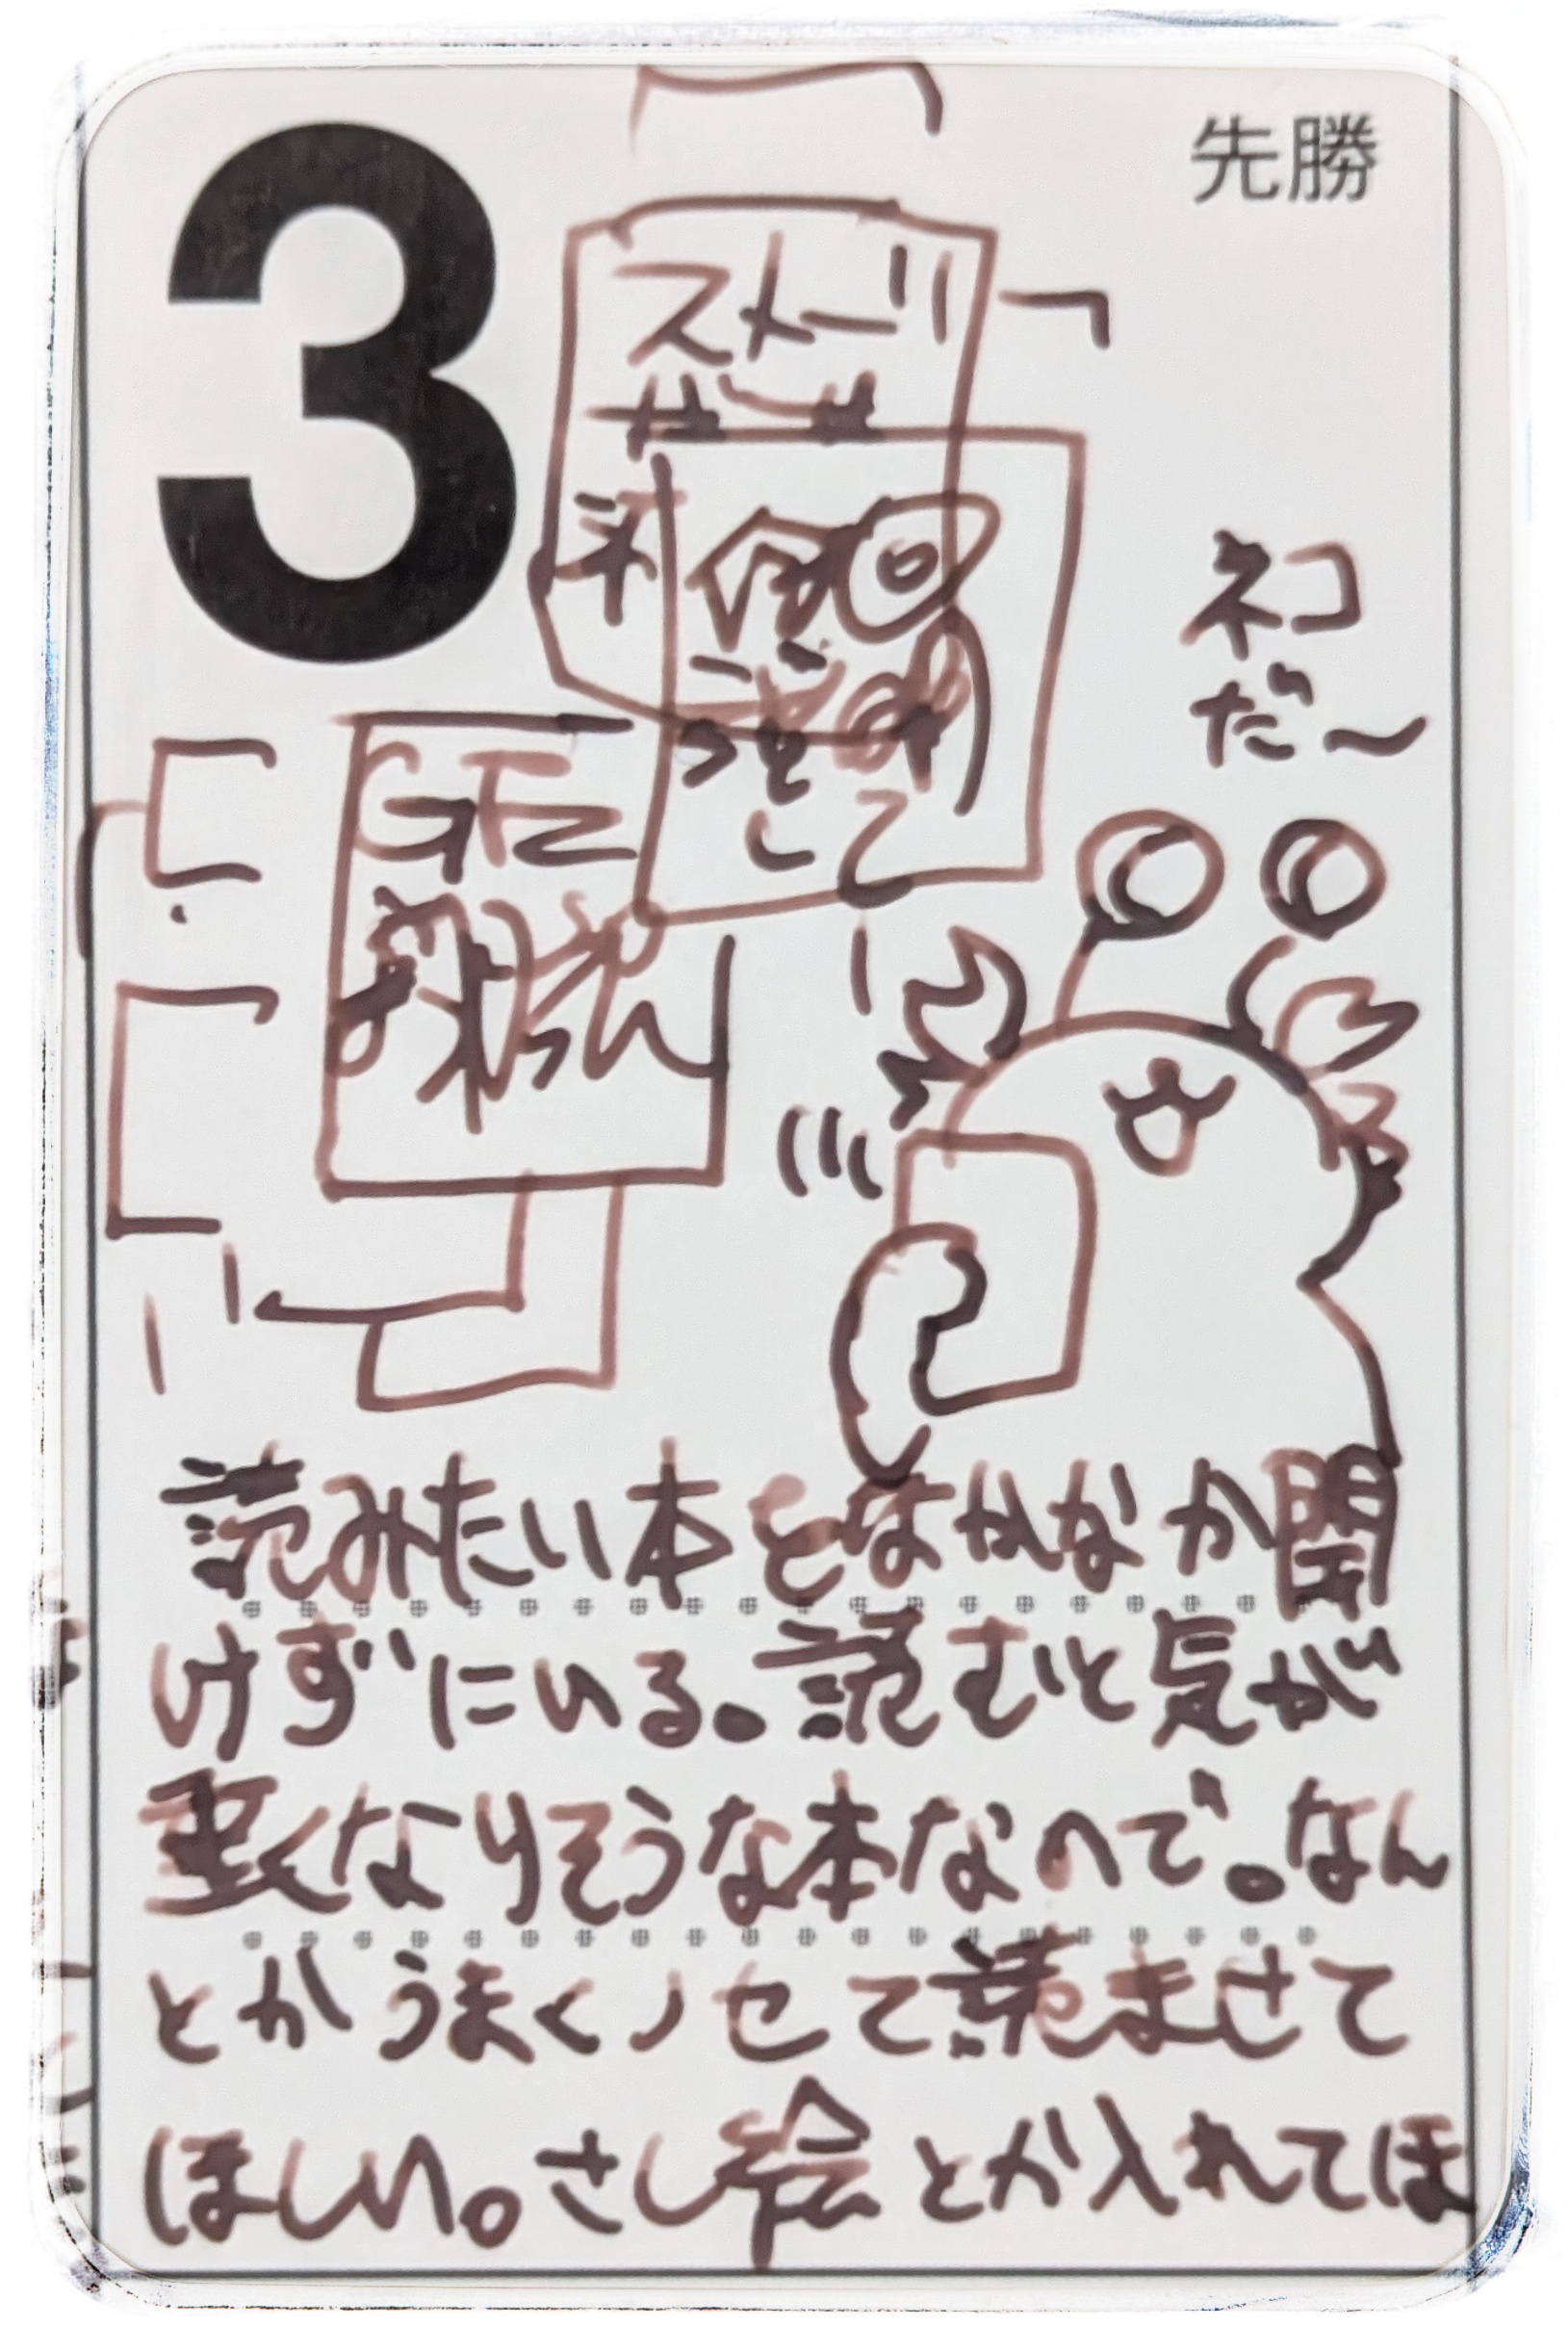 3
先勝
ストーリー
ネコ
だ〜
読みたい本をなかなか開
けずにいる。読むと気が
重くなりそうな本なので。なん
とかうまくノセて読ませて
ほしい。さし絵とか入れてほ